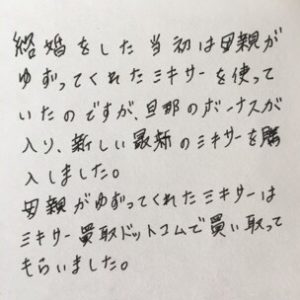 結婚をした当初は母親が
ゆずってくれたミキサーを使って
いたのですが、旦那のボーナスが
入り、新しい最新のミキサーを購
入しました。
母親がゆずってくれたミキサーは
ミキサー買取ドットコムで買い取って
もらいました。